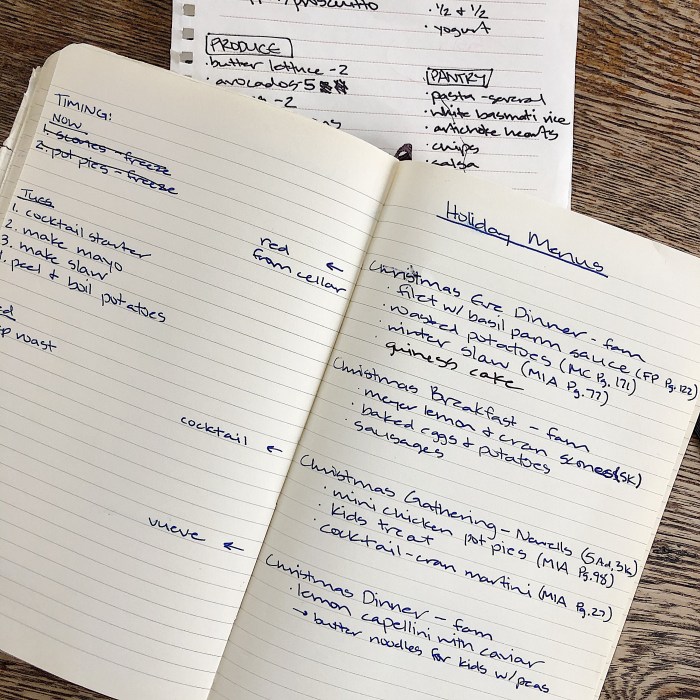 prosciutto
· 1/2 + 1/2
· yogurt
PRODUCE
· butter lettuce - 2
· avocados - 5
- 2
PANTRY
· pasta - several
· white basmati rice
· artichoke hearts
· chips
· salsa
TIMING:
NOW
1. scones - freeze
2. pot pies - freeze
Tues
1. cocktail starter
2. make mayo
3. make slaw
4. peel + boil potatoes
roast
red ←
from cellar
cocktail ←
vueve ←
Holiday Menus
Christmas Eve Dinner - fam
· filet w/ basil parm sauce (FP Pg. 122)
· roasted potatoes (MC Pg. 171)
· winter slaw (MIA Pg. 77)
· guiness cake
Christmas Breakfast - fam
· meyer lemon + cran scones (SK)
· baked eggs + potatoes
· sausages
Christmas Gathering - (5Ad, 3k)
· mini chicken pot pies (MIA Pg. 98)
· kids treat
· cocktail - cran martini (MIA Pg. 27)
Christmas Dinner - fam
· lemon capellini with caviar
→ butter noodles for kids w/ peas